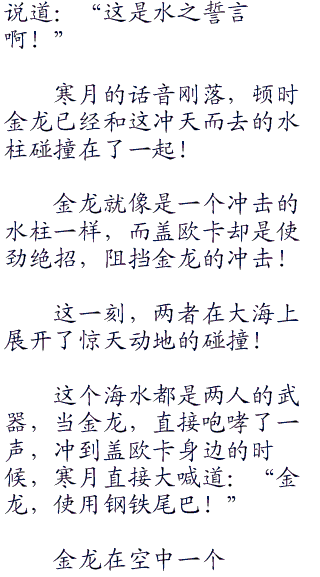 说道：“这是水之誓言
啊！”
寒月的话音刚落，顿时
金龙已经和这冲天而去的水
柱碰撞在了一起！
金龙就像是一个冲击的
水柱一样，而盖欧卡却是使
劲绝招，阻挡金龙的冲击！
这一刻，两者在大海上
展开了惊天动地的碰撞！
这个海水都是两人的武
器，当金龙，直接咆哮了一
声，冲到盖欧卡身边的时
候，寒月直接大喊道：“金
龙，使用钢铁尾巴！”
金龙在空中一个